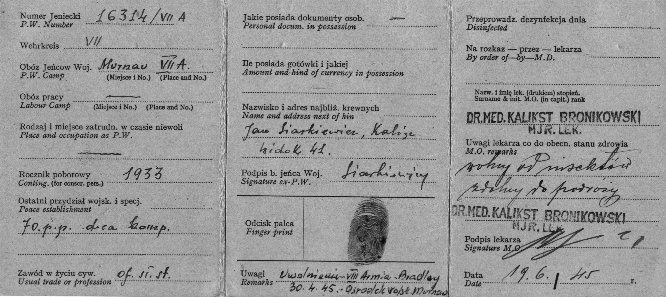 Numer Jeniecki 16314/VII A
P.W. Number
Wehrkreis VII
Obóz Jeńców Woj. Murnau VII A.
P.W. Camp (Miejsce i No.) (Place and No.)
Obóz pracy —
Labour Camp (Miejsce i No.) (Place and No.)
Rodzaj i miejsce zatrudn. w czasie niewoli
Place and occupation as P.W.
—
Rocznik poborowy 1933
Conting. (for conscr. pers.)
Ostatni przydział wojsk. i specj.
Peace establishment
70. p.p. d-ca komp.
Zawód w życiu cyw. of. sł. st.
Usual trade or profession
Jakie posiada dokumenty osob. —
Personal docum. in possession
Ile posiada gotówki i jakiej
Amount and kind of currency in possession
Nazwisko i adres najbliż. krewnych
Name and address next of kin
Jan Siarkiewicz, Kalisz
Widok 42.
Podpis b. jeńca Woj. Siarkiewicz
Signature ex-P.W.
Odcisk palca
Finger print
Uwagi Uwolniony VII Armia
Remarks 30.4.45. Murnau
Przeprowadz. dezynfekcją dnia
Disinfected
Na rozkaz — przez — lekarza
By order of—by—M.D.
Nazw. i imię lek. (drukiem) stopień.
Surname & init. M.O. (in capit.) rank
DR. MED. KALIKST BRONIKOWSKI
MJR. LEK.
Uwagi lekarza co do obecn. stanu zdrowia
M.O. remarks
wolny od insektów
zdolny do podróży
DR. MED. KALIKST BRONIKOWSKI
MJR. LEK.
Podpis lekarza
Signature M.O.
Data 19.6.45 r.
Date